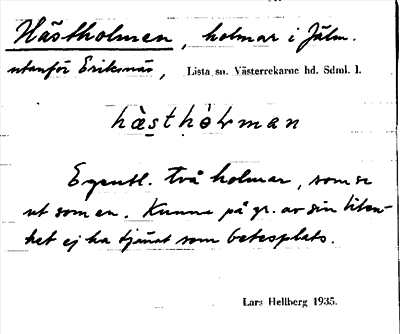 Hästholmen, holmar i Jälm.
utanför Eriksnäs, Lista sn. Västerrekarne hd. Sdml. l.
hàsthòlman
Egentl. två holmar, som se
ut som en. Kunna på gr. av sin liten-
het ej ha tjänat som betesplats.
Lars Hellberg 1935.